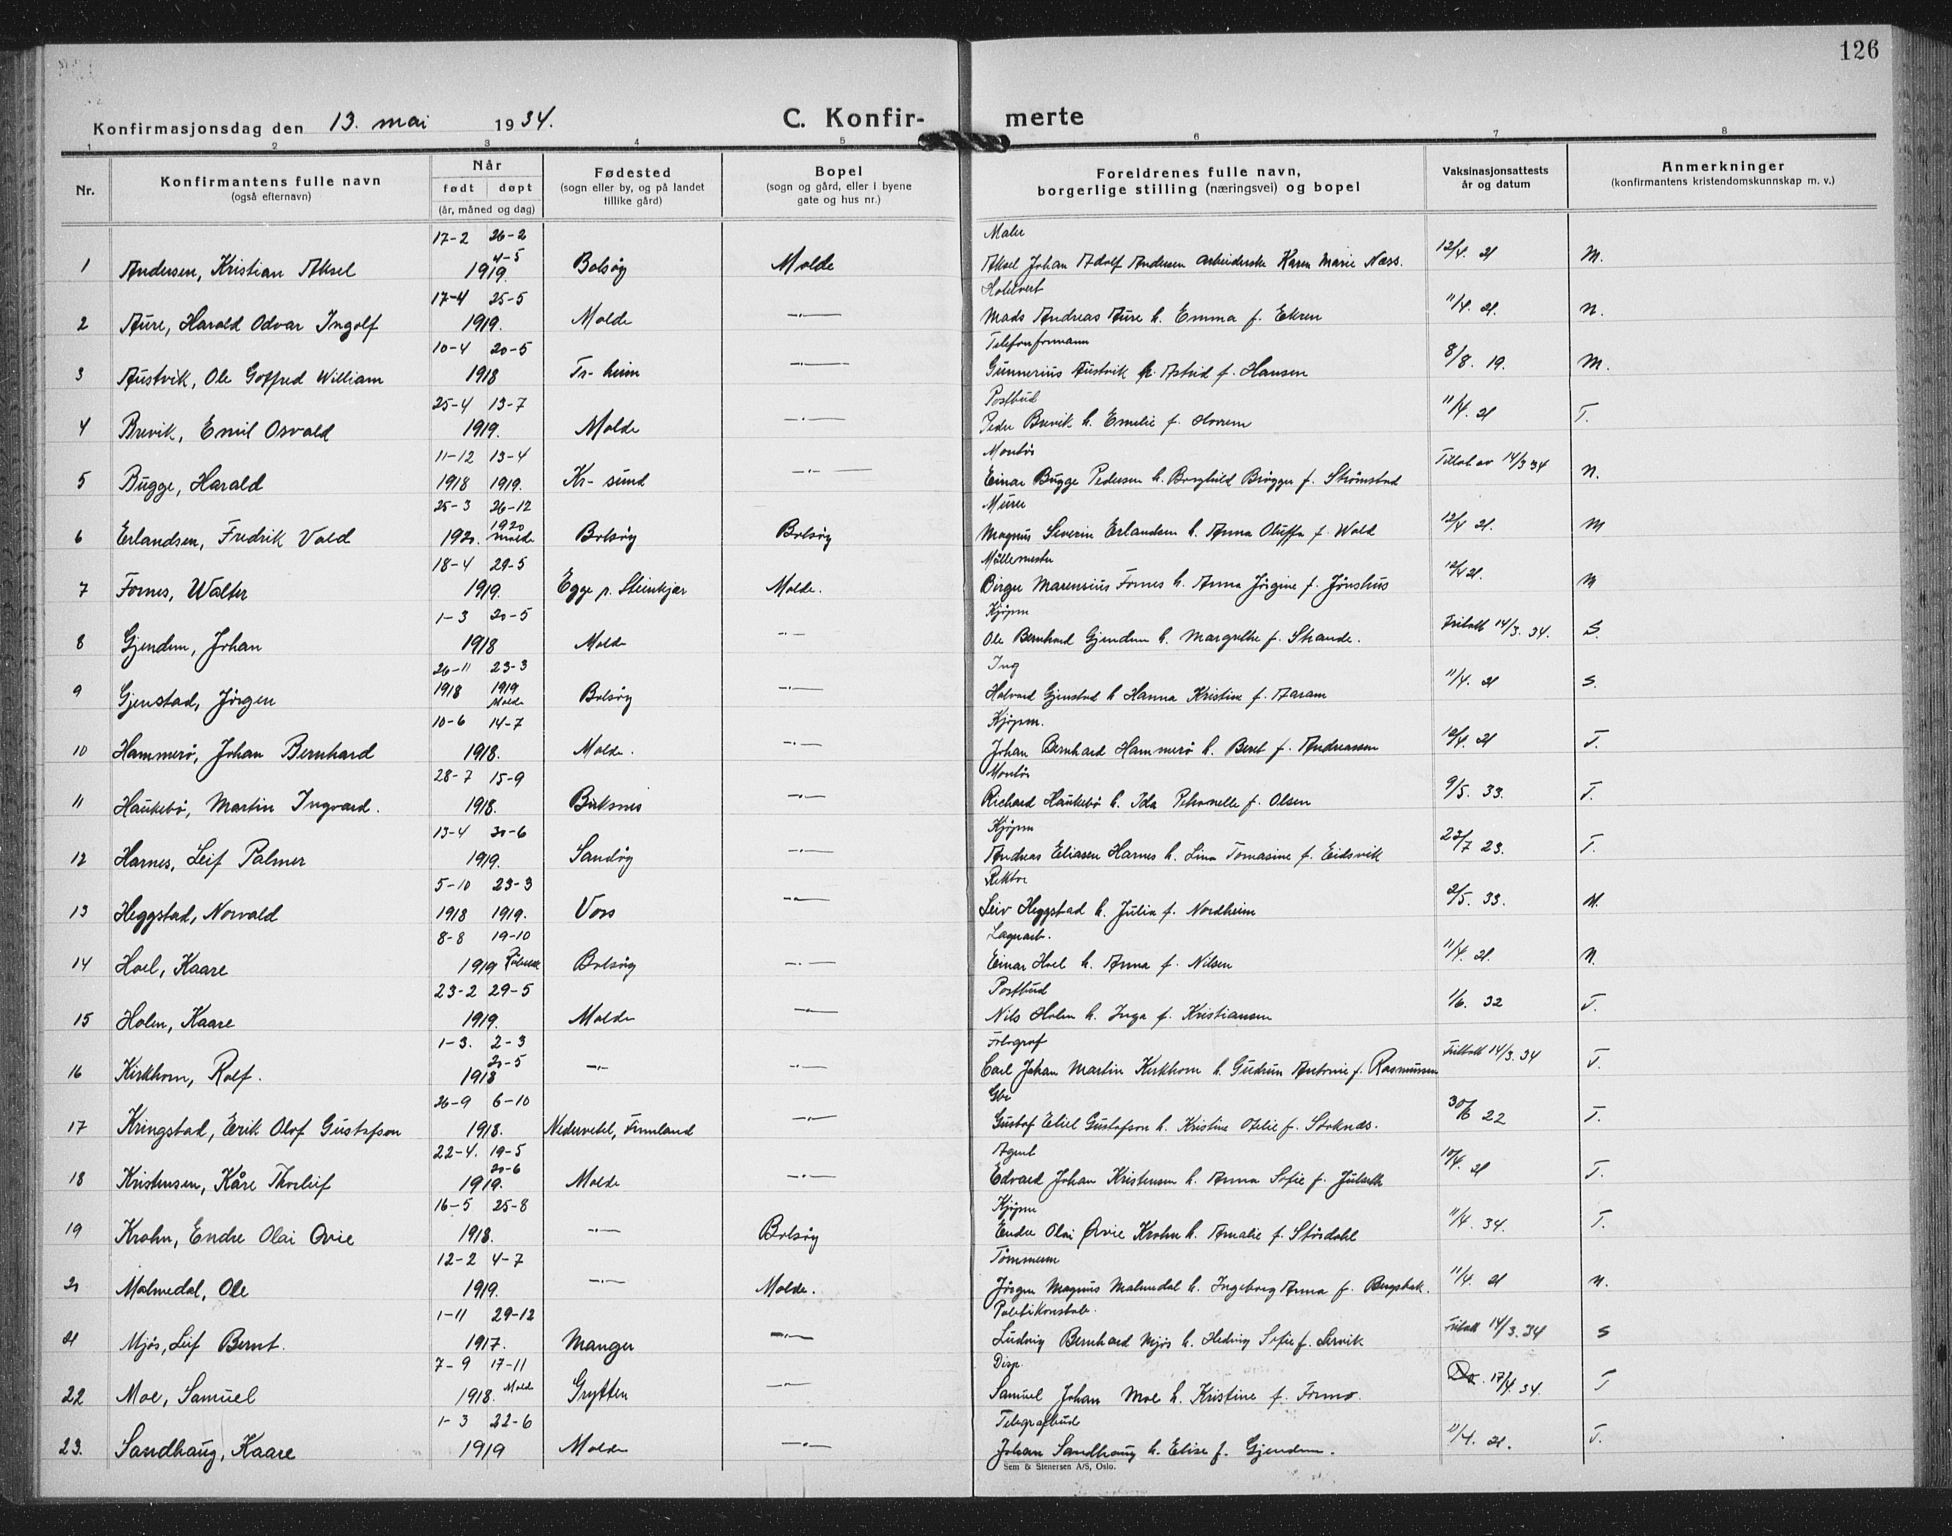 126
Konfirmasjonsdag den 13. mai 1934. C. Konfir- merte
1 2 3 4 5 6 7 8
Nr. Konfirmantens fulle navn (også efternavn) Når født døpt (år, måned og dag) Fødested (sogn eller by, og på landet tillike gård) Bopel (sogn og gård, eller i byene gate og hus nr.) Foreldrenes fulle navn, borgerlige stilling (næringsvei) og bopel Vaksinasjonsattests år og datum Anmerkninger (konfirmantens kristendomskunnskap m. v.)
17-2 26-2 Maler
4-5
1 Andersen, Kristian Aksel 1919. Bolsøy Molde Aksel Johan Adolf Andersen arbeiderske Karen Marie Næss. 12/4. 21 M.
17-4 25-5 Hotelvert
2 Aure, Harald Odvar Ingolf 1919. Molde —.— Mads Andreas Aure h. Emma f. Ekren 11/4. 21. N.
10-4 20-5 Telefonformann
3 Austvik, Ole Gotfred William 1918 Tr-heim —.— Gunnerius Austvik h. Astrid f. Hansen 8/8. 19. M.
25-4 13-7 Postbud
4 Brevik, Emil Osvald 1919. Molde —.— Peder Brevik h. Emelie f. Horrem 11/4. 21 T.
11-12 13-4 Montør
5 Bugge, Harald 1918 1919. Kr-sund —.— Einar Bugge Pedersen h. Borghild Brøgger f. Strømstad 14/3 34 N.
25-3 26-12 Murer
6 Erlandsen, Fredrik Vold 1920. 1920 Molde Bolsøy Bolsøy Magnus Severin Erlandsen h. Anna Oluffa f. Wold 12/4 21. M
18-4 29-5 Møllemester
7 Fornes, Walter 1919. Egge p. Steinkjær Molde. Birger Marensius Fornes h. Anna Jørgine f. Jønshus 12/4 21. M
1-3 20-5 Kjøpm
8 Gjendem, Johan 1918 Molde —.— Ole Bernhard Gjendem h. Margrethe f. Strande. Fritatt 14/3. 34. S.
26-11 23-3 Ing
9 Gjenstad, Jörgen 1918 1919 Molde Bolsøy —.— Halvard Gjenstad h Hanna Kristine f. Aaram 11/4. 21 S.
10-6 14-7 Kjøpm.
10 Hammerø, Johan Bernhard 1918. Molde. —.— Johan Bernhard Hammerø h. Beret f. Andreassen 12/4. 21 T.
28-7 15-9 Montör
11 Haukebø, Martin Ingvard. 1918. Buksnes —.— Richard Haukebø h. Ida Petronelle f. Olsen 9/5. 33. T.
13-4 20-6 Kjøpm
12 Harnes, Leif Palmer 1919. Sandøy —.— Andreas Eliasen Harnes h. Lina Tomasine f. Eidsvik 23/7 23. T.
5-10 23-3 Rektor
13 Heggstad, Norvald 1918 1919. Voss —.— Leiv Heggstad h. Julia f. Nordheim 2/5. 33. M.
8-8 19-10 Lagerarb.
14 Hoel, Kaare 1919 Bolsøy —.— Einar Hoel h. Anna f. Nilsen 11/4. 21. N.
23-2 29-5 Postbud
15 Holm, Kaare 1919. Molde —.— Nils Holm h. Inga f. Kristiansen 1/6. 32 T.
1-3. 2-3 Fotograf
20-5
16 Kirkhorn, Rolf. 1918 —.— —.— Carl Johan Martin Kirkhorn h. Gudrun Antonie f. Rasmussen Fritatt 14/3. 34 T.
26-9 6-10 Gbr
17 Kringstad, Erik Olof Gustafson 1918. Nedervetel, Finnland —.— Gustof Eliel Gustafson h. Kristine Otelie f. Stoknes. 30/6 22 T.
22-4. 19-5 Agent
20-6
18 Kristensen, Kåre Thorleif 1919. Molde —.— Edvard Johan Kristensen h. Anna Sofie f. Julseth 10/4. 21 T.
16-5 25-8 Kjøpm
19 Krohn, Endre Olai Ovie 1918. —.— Bolsøy Endre Olai Øvie Krohn h. Amalie f. Størdahl 11/4. 34. T.
12-2 4-7 Tømmerm
20 Malmedal, Ole 1919. —.— Molde. Jörgen Magnus Malmedal h. Ingeborg Anna f. Bergsbak. 11/4. 21 N.
1-11 29-12 Politikonstabe.
21 Mjøs, Leif Bernt. 1917. Manger —.— Ludvig Bernhard Mjøs h. Hedvig Sofie f. Lervik Fritatt 14/3. 34 S
7-9 17-11 Disp.
22 Moe, Samuel 1918. Molde Grytten —.— Samuel Johan Moe h. Kristine f. Formo. Do. 17/4. 34. T
1-3 22-6 Telegrafbude
23. Sandhaug, Kaare 1919 Molde —.— Johan Sandhaug h. Elise f. Gjendem. 11/4. 21. T.
Sem & Stenersen A/S, Oslo.